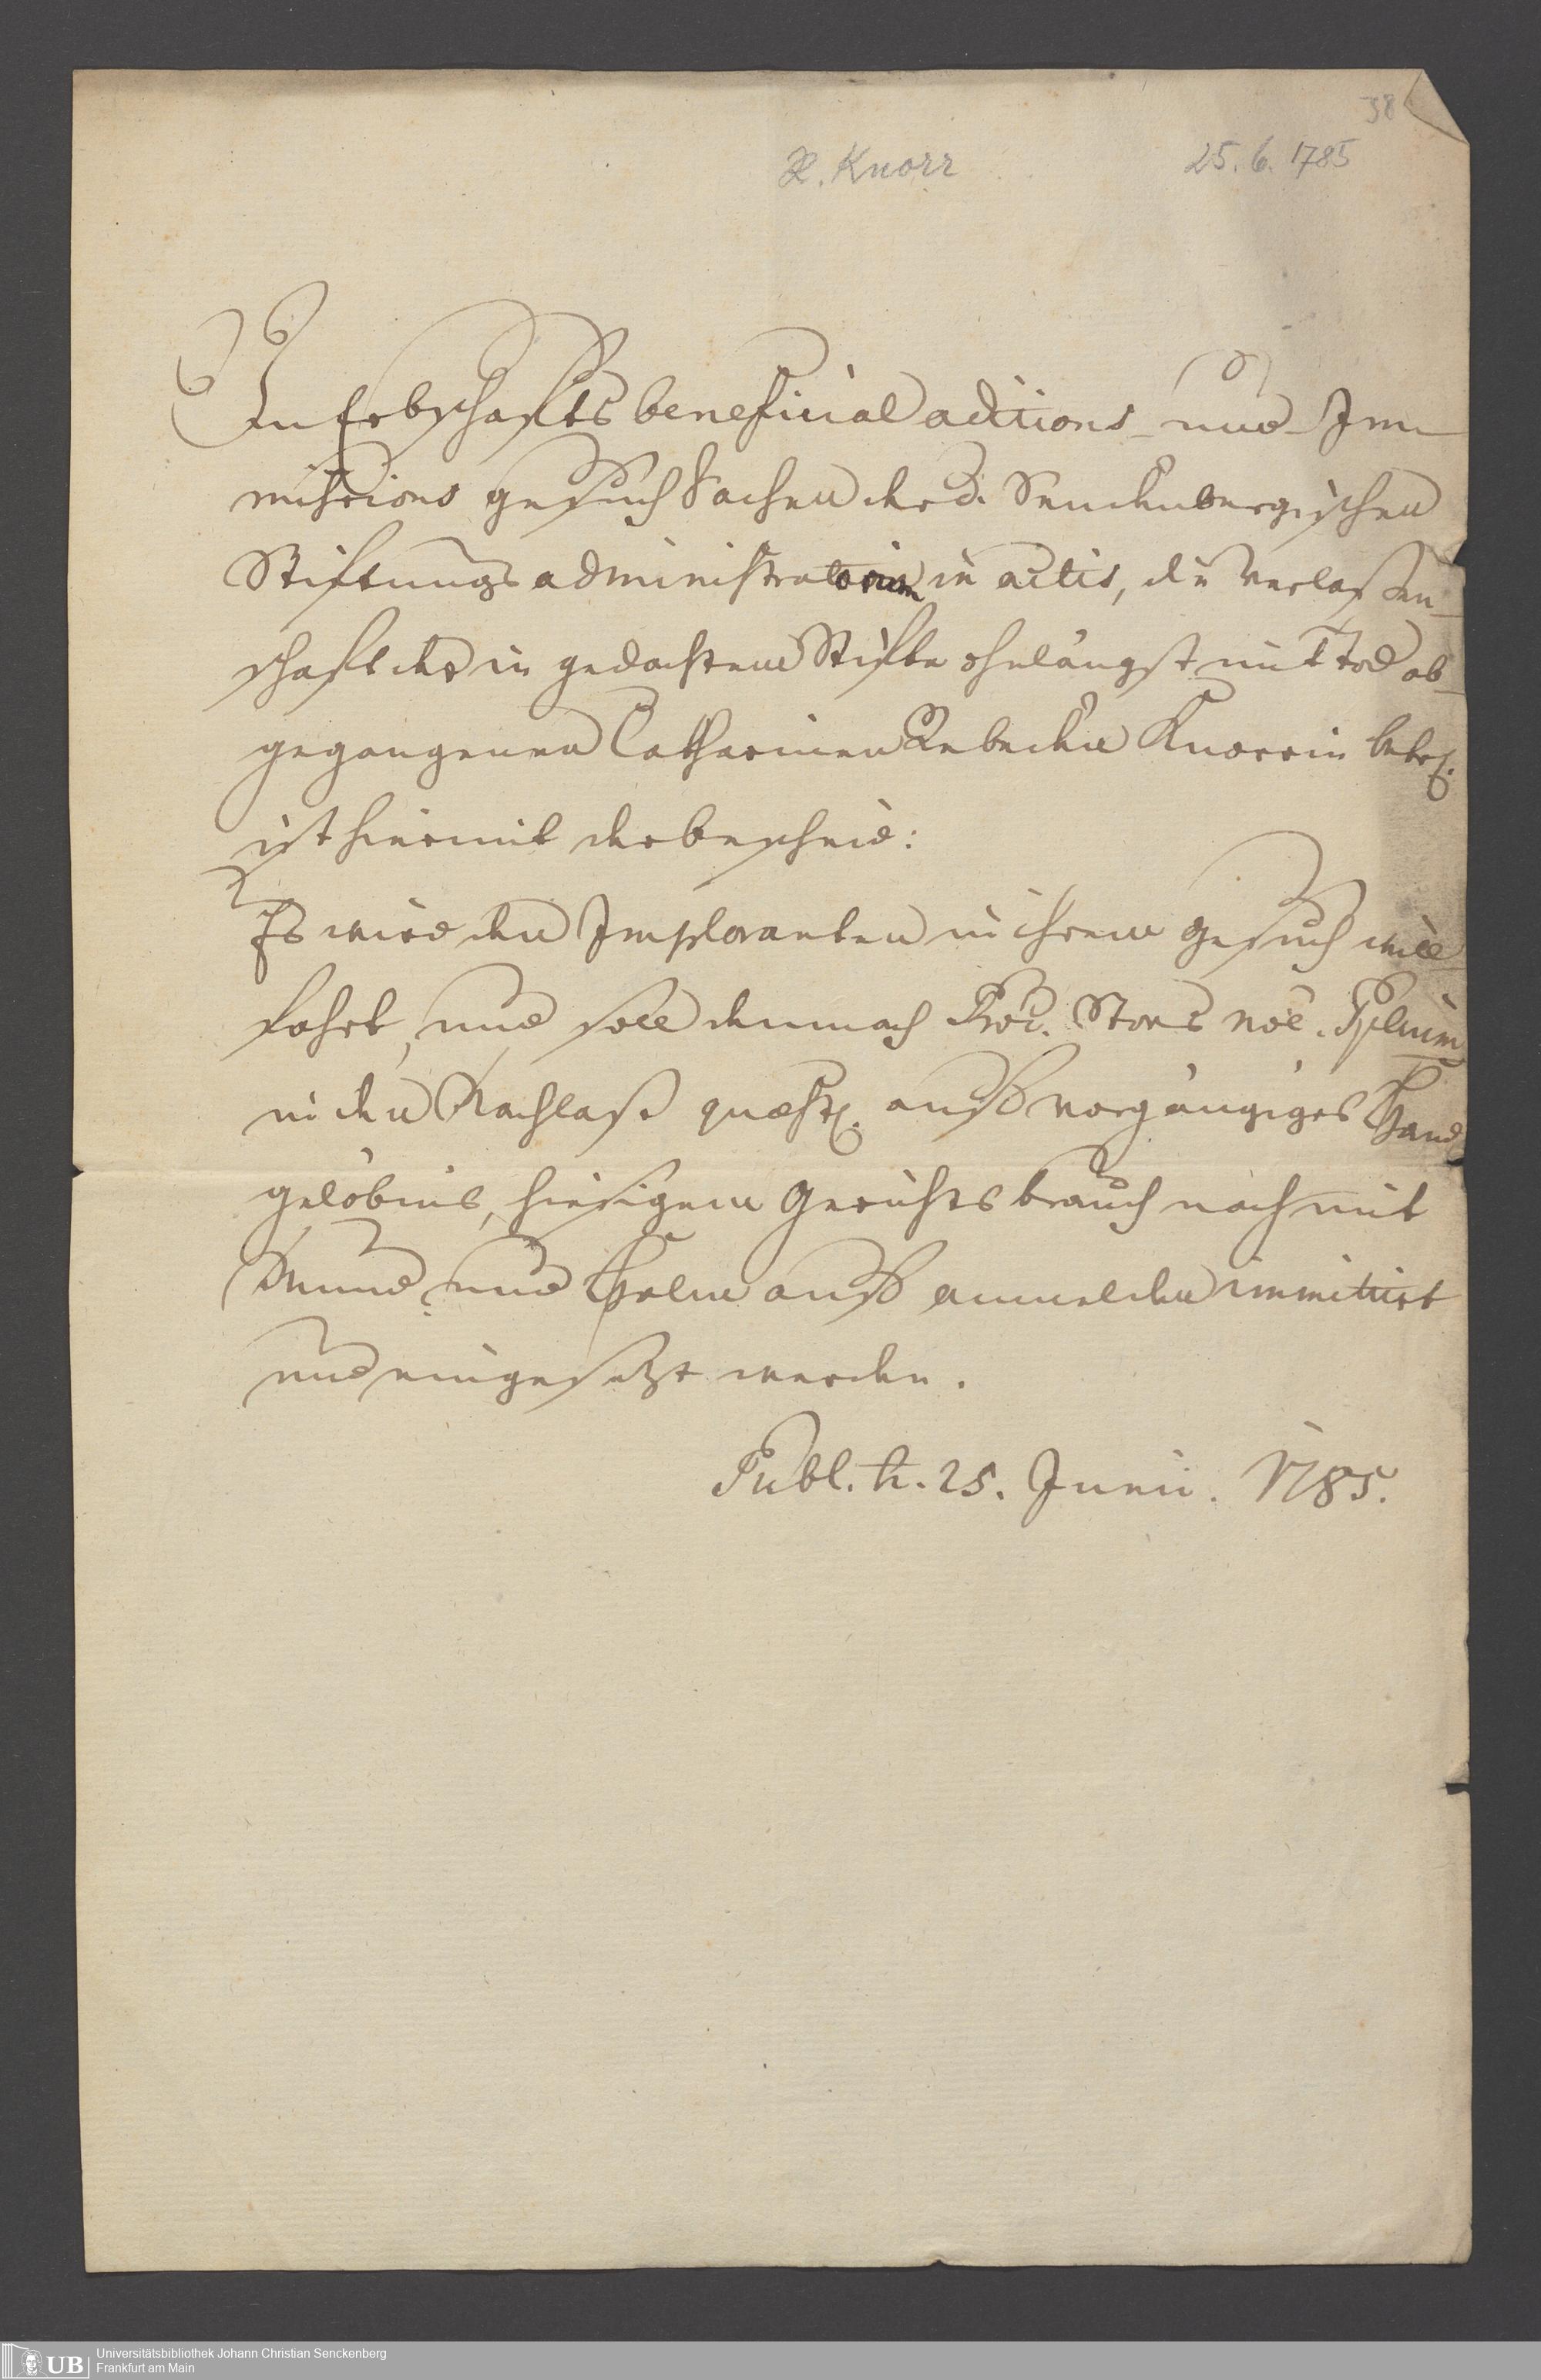 38
R. Knorr 25. 6. 1785
In Erbschafts beneficial aditions- und Im-
missions gesuch Sachen der D. Senckenbergischen
Stiftungs administratorum in actis, die verlaßen-
schaft der in gedachtem Stifte ohnlängst mit Tod ab-
gegangenen Catharinen Rebecken Knorrin betr.
ist hiermit der bescheid:
Es wird den Imploranten in ihrem gesuch will-
fahrt, und soll demnach Proc. Stors noe. Pplium
in den Nachlaß quaest. auff vorgängiges Hand-
gelöbnis, hiesigem Gerichtsbrauch nach mit
Mund und Halm auff anmelden immittirt
und eingesetzt werden.
Publ. d. 25. Junii. 1785.
UB Universitätsbibliothek Johann Christian Senckenberg
Frankfurt am Main